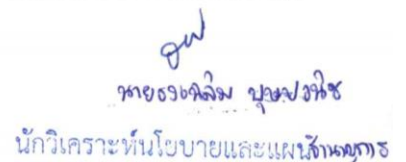 นายธงเฉลิม บุษปวนิช
นักวิเคราะห์นโยบายและแผนชำนาญการ